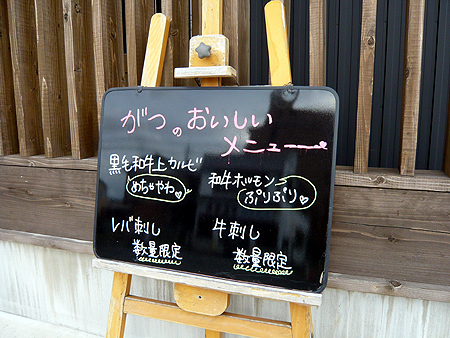 がつのおいしい
メニュー
黒毛和牛上カルビ
めちゃやわ♡
和牛ホルモン
ぷりぷり♡
レバ刺し
数量限定
牛刺し
数量限定